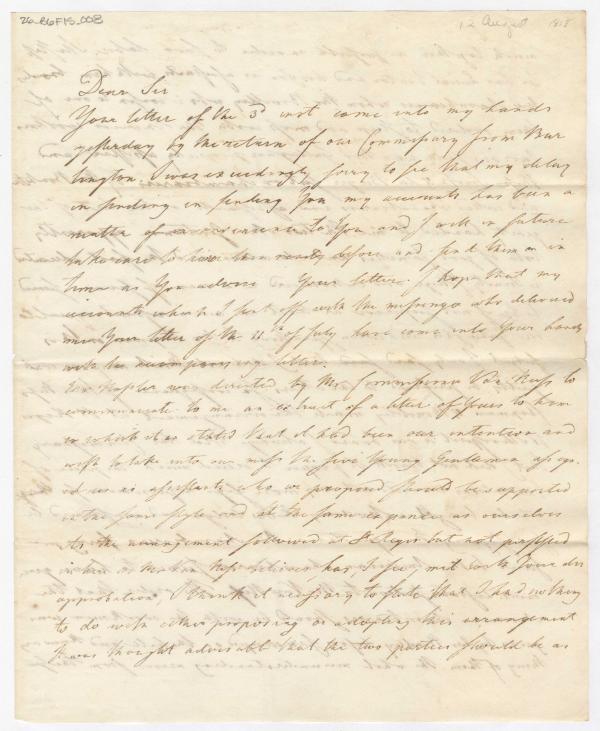 26-B6F15_008
12 August 1818
Dear Sir
Your letter of the 3d inst came into my hands
yesterday by the return of our Commissary from Bur
lington. I was exceedingly sorry to see that my delay
in sending in sending You my accounts has been a
matter of inconvenience to You and I will in future
take care to have them ready before and send them on in
time as You advise Your letter. I hope that my
accounts which I sent off with the messenger who delivered
me Your letter of the 11th of July have come into Your hands
with the accompanying letter.
was directed by Mr Commissioner Van Ness to
communicate to me an extract of a letter of Yours to him
in which it is stated that it had been our intention and
wish to take into our mess the five Young Gentlemen assign
ed us as assistants who we proposed should be supported
in the same style and at the same expence as ourselves
As the arrangement followed at St Regis but not
has, I see met with Your dis
approbation, I think it necessary to state that I had nothing
to do with either proposing or adopting this arrangement
It was thought advisable that the two parties should be as